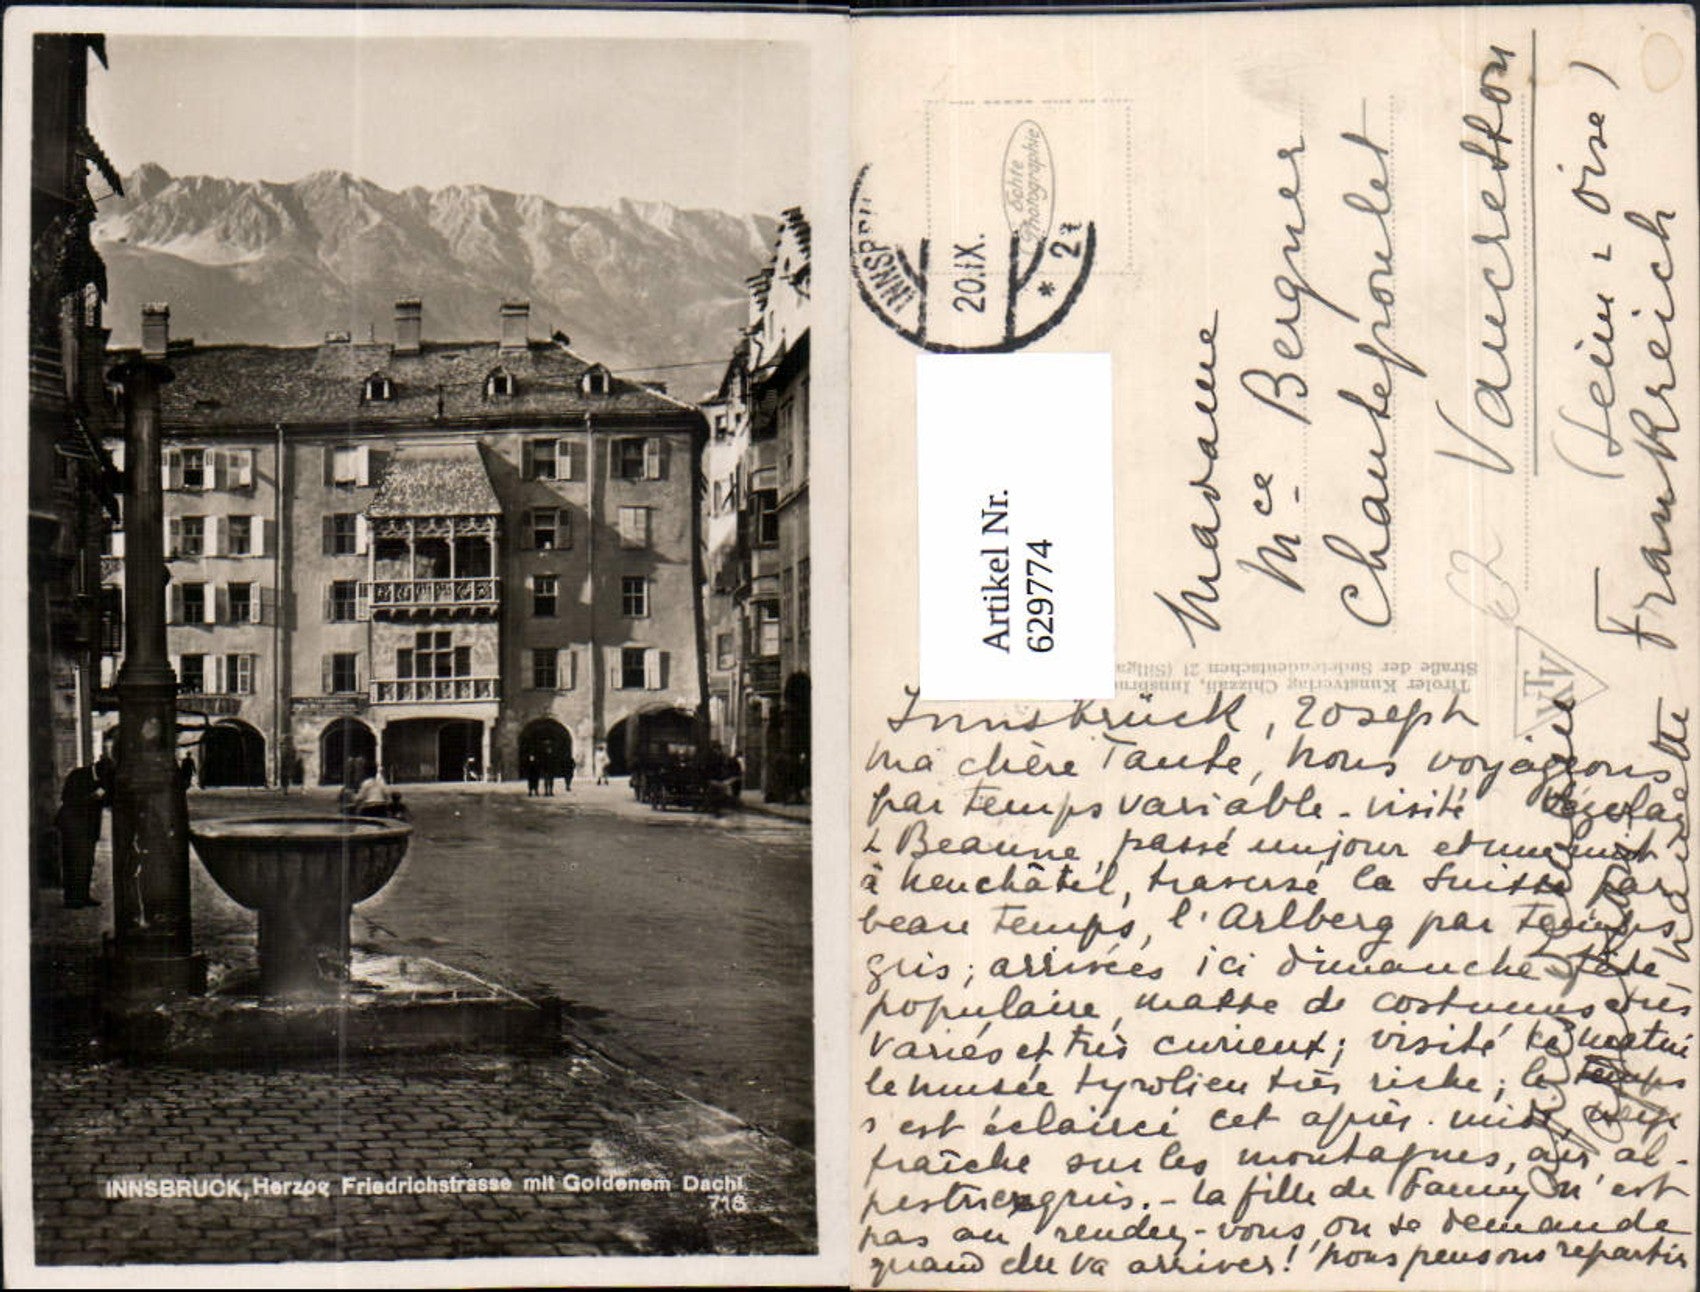 INNSBRUCK, Herzog Friedrichstrasse mit Goldenem Dachl
716
Echte
Photographie
INNSBRU
20.IX.
* 2
Artikel Nr.
6297774
Madame
Mce Bergner
Chantepoulet
Vaucresson
(Seine - Oise)
Frankreich
62
Tiroler Kunstverlag Chizzali, Innsbru
Straße der Sudetendeutschen 21 (Sillga
Innsbrück, 20 sept
Ma chère Tante, nous voyageons
par temps variable - visité
Beaune, passé un jour et une nuit
à Neuchâtel, traversé la Suisse par
beau temps, l'Arlberg par temps
gris; arrivées ici dimanche fête
populaire, masse de costumes très
variés et très curieux; visité ce matin
le musée tyrolien très riche; le temps
s'est éclairci cet après-midi, neige
fraîche sur les montagnes, air al-
pestre exquis. - La fille de Fanny n'est
pas au rendez-vous, on se demande
quand elle va arriver! nous pensons repartir